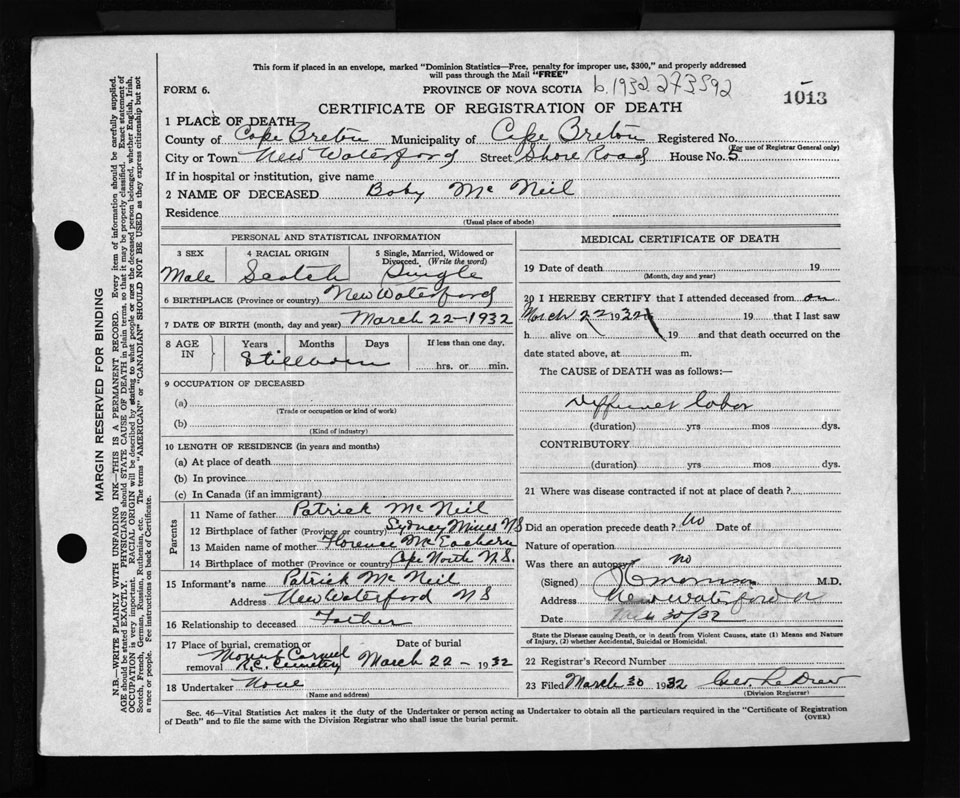 This form if placed in an envelope, marked "Dominion Statistics—Free, penalty for improper use, $300," and properly addressed
will pass through the Mail "FREE"
FORM 6. PROVINCE OF NOVA SCOTIA b.1932 273592
1013
CERTIFICATE OF REGISTRATION OF DEATH
1 PLACE OF DEATH
County of Cape Breton Municipality of Cape Breton Registered No.
(For use of Registrar General only)
City or Town New Waterford Street Shore Road House No. 5
If in hospital or institution, give name
2 NAME OF DECEASED Baby McNeil
Residence
(Usual place of abode)
PERSONAL AND STATISTICAL INFORMATION
3 SEX 4 RACIAL ORIGIN 5 Single, Married, Widowed or
Divorced. (Write the word)
Male Scotch Single
6 BIRTHPLACE (Province or country) New Waterford
7 DATE OF BIRTH (month, day and year) March 22-1932
8 AGE IN Years Months Days If less than one day,
Stillborn hrs. or min.
9 OCCUPATION OF DECEASED
(a)
(Trade or occupation or kind of work)
(b)
(Kind of industry)
10 LENGTH OF RESIDENCE (in years and months)
(a) At place of death
(b) In province
(c) In Canada (if an immigrant)
Parents
11 Name of father Patrick McNeil
12 Birthplace of father (Province or country) Sydney Mines N.S
13 Maiden name of mother Florence McEachern
14 Birthplace of mother (Province or country) Cape North N.S.
15 Informant's name Patrick McNeil
Address New Waterford N S
16 Relationship to deceased Father
17 Place of burial, cremation or removal Mount Carmel R.C. Cemetery
Date of burial March 22 - 1932
18 Undertaker None
(Name and address)
MEDICAL CERTIFICATE OF DEATH
19 Date of death 19
(Month, day and year)
20 I HEREBY CERTIFY that I attended deceased from on
March 22 1932 19 that I last saw
h alive on 19 and that death occurred on the
date stated above, at m.
The CAUSE of DEATH was as follows:—
labor
(duration) yrs mos dys.
CONTRIBUTORY
(duration) yrs mos dys.
21 Where was disease contracted if not at place of death?
Did an operation precede death? No Date of
Nature of operation
Was there an autopsy? No
(Signed) M.D.
Address New Waterford
Date 30/32
State the Disease causing Death, or in death from Violent Causes, state (1) Means and Nature
of Injury, (2) whether Accidental, Suicidal or Homicidal.
22 Registrar's Record Number
23 Filed March 30 1932
(Division Registrar)
Sec. 46—Vital Statistics Act makes it the duty of the Undertaker or person acting as Undertaker to obtain all the particulars required in the "Certificate of Registration
of Death" and to file the same with the Division Registrar who shall issue the burial permit. (OVER)
MARGIN RESERVED FOR BINDING
N.B.—WRITE PLAINLY WITH UNFADING INK—THIS IS A PERMANENT RECORD. Every item of information should be carefully supplied.
AGE should be stated EXACTLY. PHYSICIANS should STATE CAUSE OF DEATH in plain terms, so that it may be properly classified. Exact statement of
OCCUPATION is very important. RACIAL ORIGIN will be described by stating to what people or race the deceased person belonged, whether English, Irish,
Scotch, French, German, Russian, Ruthenian, etc. The terms "AMERICAN" or "CANADIAN" SHOULD NOT BE USED as they express citizenship but not
a race or people. See instructions on back of Certificate.